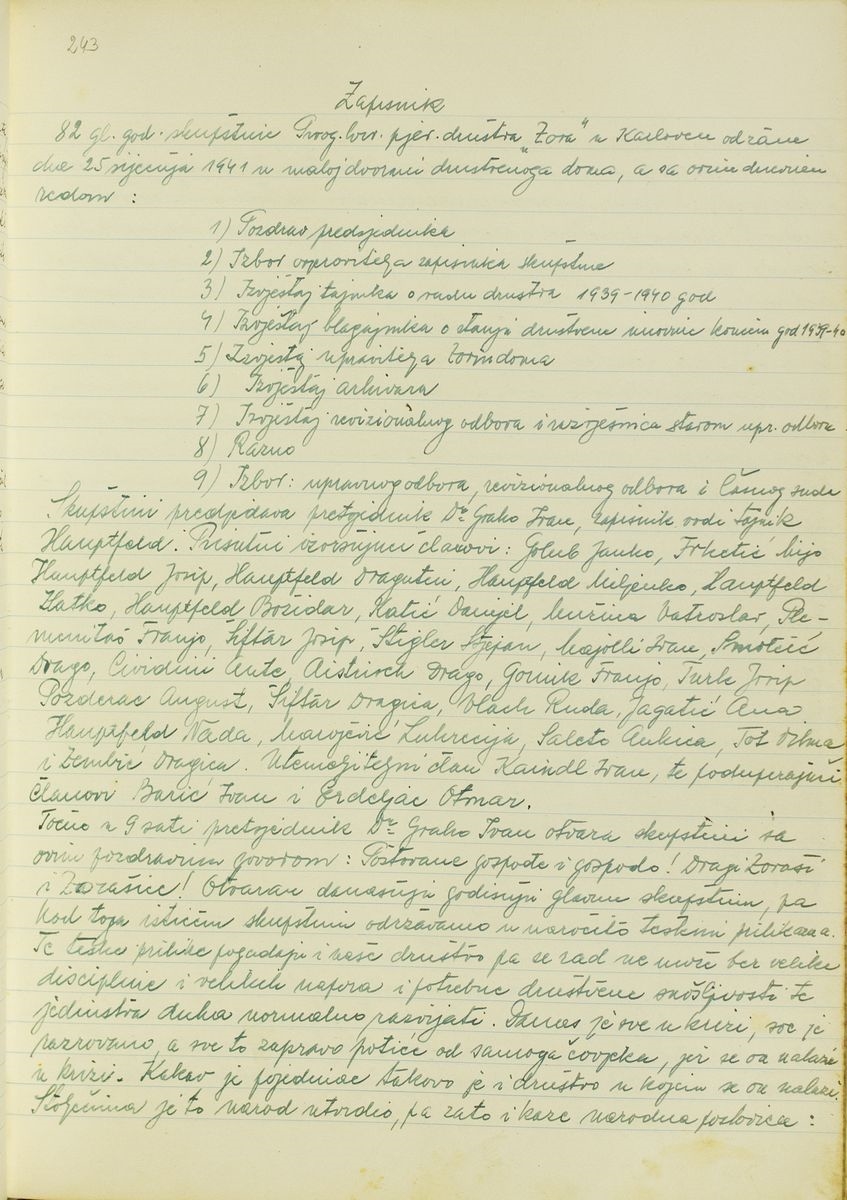 243
Zapisnik
82 gl. god. skupštine Prvog. hrv. pjev. društva „Zora" u Karlovcu održane
dne 25 siječnja 1941 u maloj dvorani društvenoga doma, a sa ovim dnevnim
redom :
1) Pozdrav predsjednika
2) Izbor ovjerovitelja zapisnika skupštine
3) Izvještaj tajnika o radu društva 1939-1940 god
4) Izvještaj blagajnika o stanju društvene imovine koncem god 1939-40
5) Izvještaj upravitelja Zorindoma
6) Izvještaj arhivara
7) Izvještaj revizionalnog odbora i razrješnica starom upr. odboru
8) Razno
9) Izbor: upravnog odbora, revizionalnog odbora i časnog suda
Skupštini predsjedava pretsjednik Dr. Graho Ivan, zapisnik vodi tajnik
Hauptfeld. Prisutni izvršujući članovi: Golub Janko, Frketić Mijo
Hauptfeld Josip, Hauptfeld Dragutin, Hauptfeld Miljenko, Hauptfeld
Zlatko, Hauptfeld Božidar, Katić Danijel, Mužina Vatroslav, Ple-
menitaš Franjo, Šiftar Josip, Štigler Stjepan, Majolli Ivan, Smolčić
Drago, Cividini Ante, Aistrisch Drago, Gornik Franjo, Turk Josip
Pozderac August, Šiftar Dragica, Vlach Ruda, Jagatić Ana
Hauptfeld Nada, Marojčić Lukrecija, Salete Ankica, Tot Vilma
i Zembić Dragica. Utemeljiteljni član Kaindl Ivan, te podupirajući
članovi Barić Ivan i Erdeljac Otmar.
Točno u 9 sati pretsjednik Dr. Graho Ivan otvara skupštinu sa
ovim pozdravnim govorom: Poštovane gospođe i gospodo! Dragi Zoraši
i Zorašice! Otvaram današnju godišnju glavnu skupštinu, pa
kod toga ističem skupštinu održavamo u naročito teškim prilikama.
Te teške prilike pogađaju i naše društvo pa se rad ne može bez velike
discipline i velikih napora i potrebne društvene snošljivosti te
jedinstva duha normalno razvijati. Danas je sve u krizi, sve je
razrovano, a sve to zapravo potiče od samoga čovjeka, jer se on nalazi
u krizi. Kakav je pojedinac takovo je i društvo u kojem se on nalazi.
Stoljećima je to narod utvrdio, pa zato i kaže narodna poslovica :